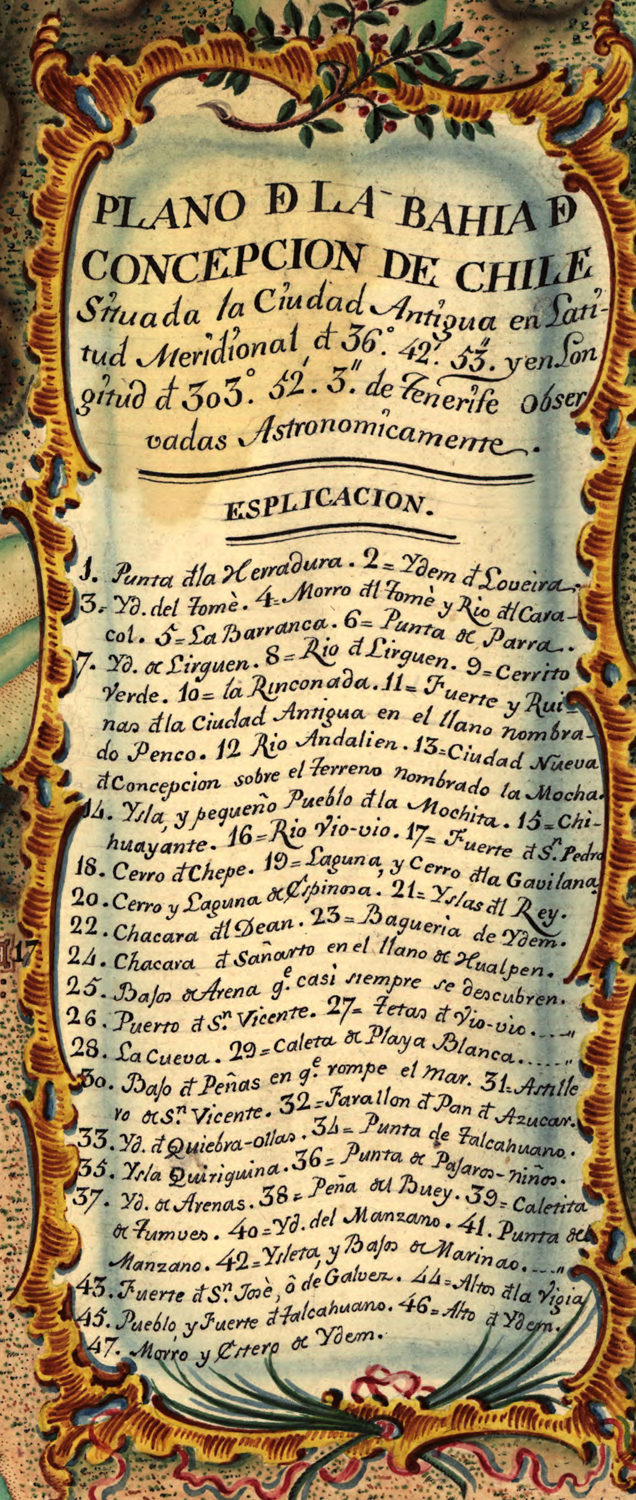 PLANO Đ LA BAHIA Đ
CONCEPCION DE CHILE
Situada la Ciudad Antigua en Lati-
tud Meridional, đ 36.° 42.' 53.'' y en Lon
gitud đ 303.° 52. 3.'' de Tenerife Obser
vadas Astronomicamente.
ESPLICACION.
1. Punta đla Herradura. 2= Ydem đ Loveira.
3= Yd. del Tomè. 4= Morro đl Tomè y Rio đl Cara-
col. 5= La Barranca. 6= Punta de Parra.
7. Yd. de Lirguen. 8= Rio đ Lirguen. 9= Cerrito
Verde. 10= la Rinconada. 11= Fuerte y Rui-
nas đla Ciudad Antigua en el llano nombra-
do Penco. 12 Rio Andalien. 13= Ciudad Nueva
đ Concepcion sobre el Terreno nombrado la Mocha.
14. Ysla, y pequeño Pueblo đla Mochita. 15= Chi-
huayante. 16= Rio Vio-vio. 17= Fuerte đ S.n Pedro
18. Cerro đ Chepe. 19= Laguna, y Cerro đla Gavilana,
20. Cerro y Laguna de Espinosa. 21= Yslas đl Rey.
22. Chacara đl Dean. 23= Baqueria de Ydem.
24. Chacara đ Sañarto en el llano de Hualpen.
25. Bajos de Arena q.e casi siempre se descubren.
26. Puerto đ S.n Vicente. 27= Tetas đ Vio-vio.....''
28. La Cueva. 29= Caleta de Playa Blanca.....''
30. Bajo đ Peñas en q.e rompe el mar. 31= Astille
ro de S.n Vicente. 32= Farallon đ Pan đ Azucar.
33. Yd. đ Quiebra-ollas. 34= Punta de Talcahuano.
35. Ysla Quiriquina. 36= Punta de Pajaros-niños.
37. Yd. de Arenas. 38= Peña del Buey. 39= Caletita
de Tumves. 40= Yd. del Manzano. 41. Punta del
Manzano. 42= Ysleta, y Bajos de Marinao.....''
43. Fuerte đ S.n Josè, ô de Galvez. 44= Altos đla Vigia
45. Pueblo, y Fuerte đ Talcahuano. 46= Alto đ Ydem.
47. Morro y Estero de Ydem.
17